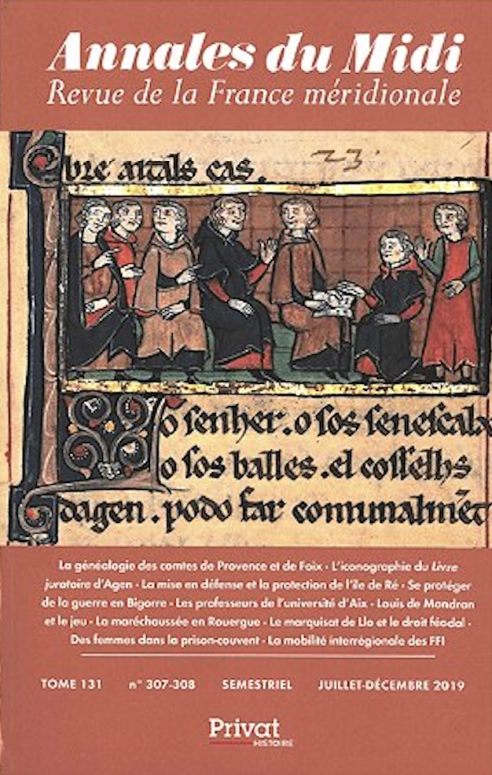 Annales du Midi
Revue de la France méridionale
bre aitals cas.
23.
o senher. o sos senescalx
o sos balles. el cosselhs
dagen. podo far comunalmēt
La généalogie des comtes de Provence et de Foix · L'iconographie du Livre
juratoire d'Agen · La mise en défense et la protection de l'île de Ré · Se protéger
de la guerre en Bigorre · Les professeurs de l'université d'Aix · Louis de Mondran
et le jeu · La maréchaussée en Rouergue · Le marquisat de Llo et le droit féodal ·
Des femmes dans la prison-couvent · La mobilité interrégionale des FFI
TOME 131 n° 307-308 SEMESTRIEL JUILLET-DÉCEMBRE 2019
Privat
HISTOIRE